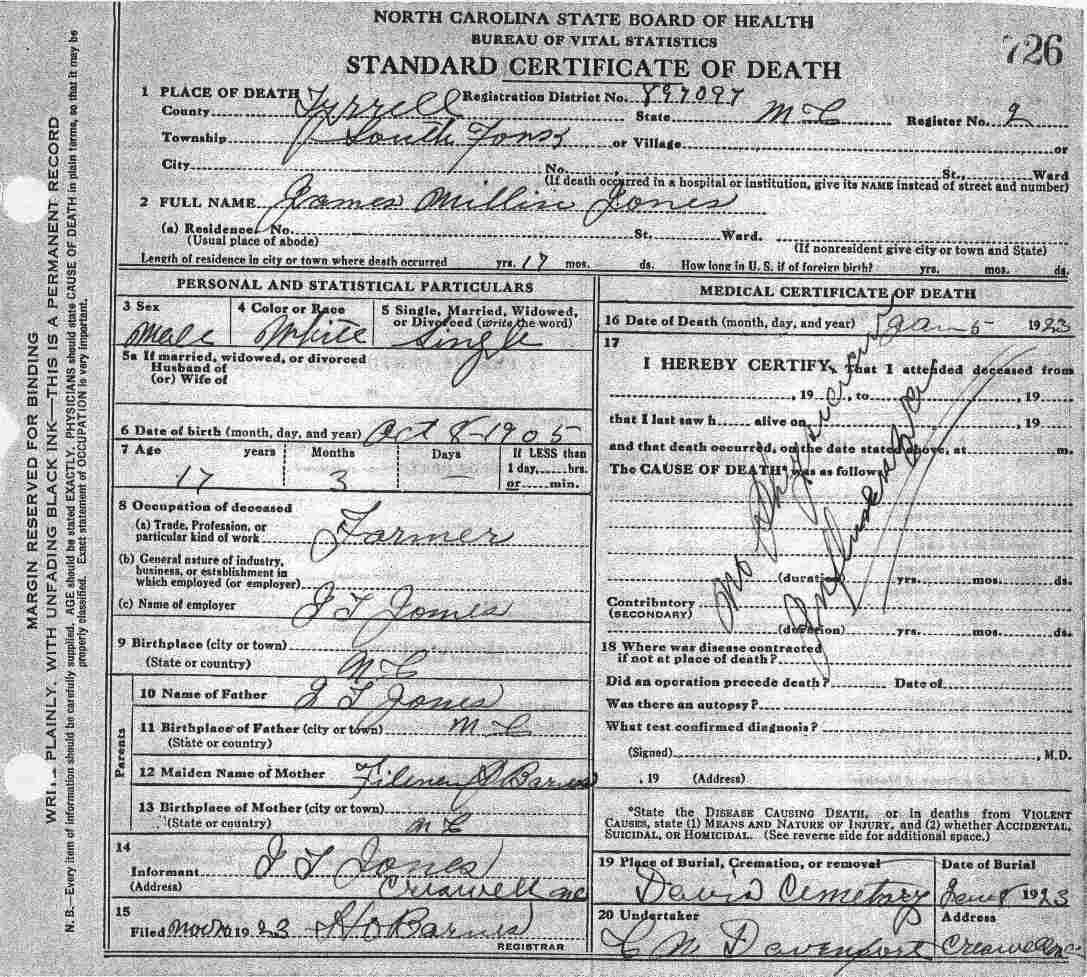 NORTH CAROLINA STATE BOARD OF HEALTH
BUREAU OF VITAL STATISTICS
726
STANDARD CERTIFICATE OF DEATH
1 PLACE OF DEATH Registration District No. 897097
County Tyrrell State N C Register No. 2
Township South Fork or Village or
City No. St., Ward
(If death occurred in a hospital or institution, give its NAME instead of street and number)
2 FULL NAME James Jones
(a) Residence. No. St. Ward.
(Usual place of abode) (If nonresident give city or town and State)
Length of residence in city or town where death occurred yrs. 17 mos. ds. How long in U. S. if of foreign birth? yrs. mos. ds.
PERSONAL AND STATISTICAL PARTICULARS
3 Sex 4 Color or Race 5 Single, Married, Widowed, or Divorced (write the word)
Male White Single
5a If married, widowed, or divorced
Husband of
(or) Wife of
6 Date of birth (month, day, and year) Oct 8-1905
7 Age years Months Days If LESS than
1 day, hrs.
17 3 — or min.
8 Occupation of deceased
(a) Trade, Profession, or
particular kind of work Farmer
(b) General nature of industry,
business, or establishment in
which employed (or employer)
(c) Name of employer J T Jones
9 Birthplace (city or town)
(State or country) N C
Parents
10 Name of Father J T Jones
11 Birthplace of Father (city or town) N C
(State or country)
12 Maiden Name of Mother Barnes
13 Birthplace of Mother (city or town)
(State or country) N C
14
Informant J T Jones
(Address) Creswell NC
15
Filed 1923 Barnes
REGISTRAR
MEDICAL CERTIFICATE OF DEATH
16 Date of Death (month, day, and year) Jan 5 1923
17
I HEREBY CERTIFY, That I attended deceased from
, 19 , to , 19
that I last saw h alive on , 19
and that death occurred, on the date stated above, at m.
The CAUSE OF DEATH* was as follows:
No Physician
Influenza
(duration) yrs. mos. ds.
Contributory
(SECONDARY)
(duration) yrs. mos. ds.
18 Where was disease contracted
if not at place of death?
Did an operation precede death? Date of
Was there an autopsy?
What test confirmed diagnosis?
(Signed) , M.D.
, 19 (Address)
*State the DISEASE CAUSING DEATH, or in deaths from VIOLENT
CAUSES, state (1) MEANS AND NATURE OF INJURY, and (2) whether ACCIDENTAL,
SUICIDAL, OR HOMICIDAL. (See reverse side for additional space.)
19 Place of Burial, Cremation, or removal Date of Burial
Davis Cemetary Jan 8 1923
20 Undertaker Address
C N Davenport Creswell NC
MARGIN RESERVED FOR BINDING
PLAINLY, WITH UNFADING BLACK INK—THIS IS A PERMANENT RECORD
N. B.—Every item of information should be carefully supplied. AGE should be stated EXACTLY. PHYSICIANS should state CAUSE OF DEATH in plain terms, so that it may be
properly classified. Exact statement of OCCUPATION is very important.